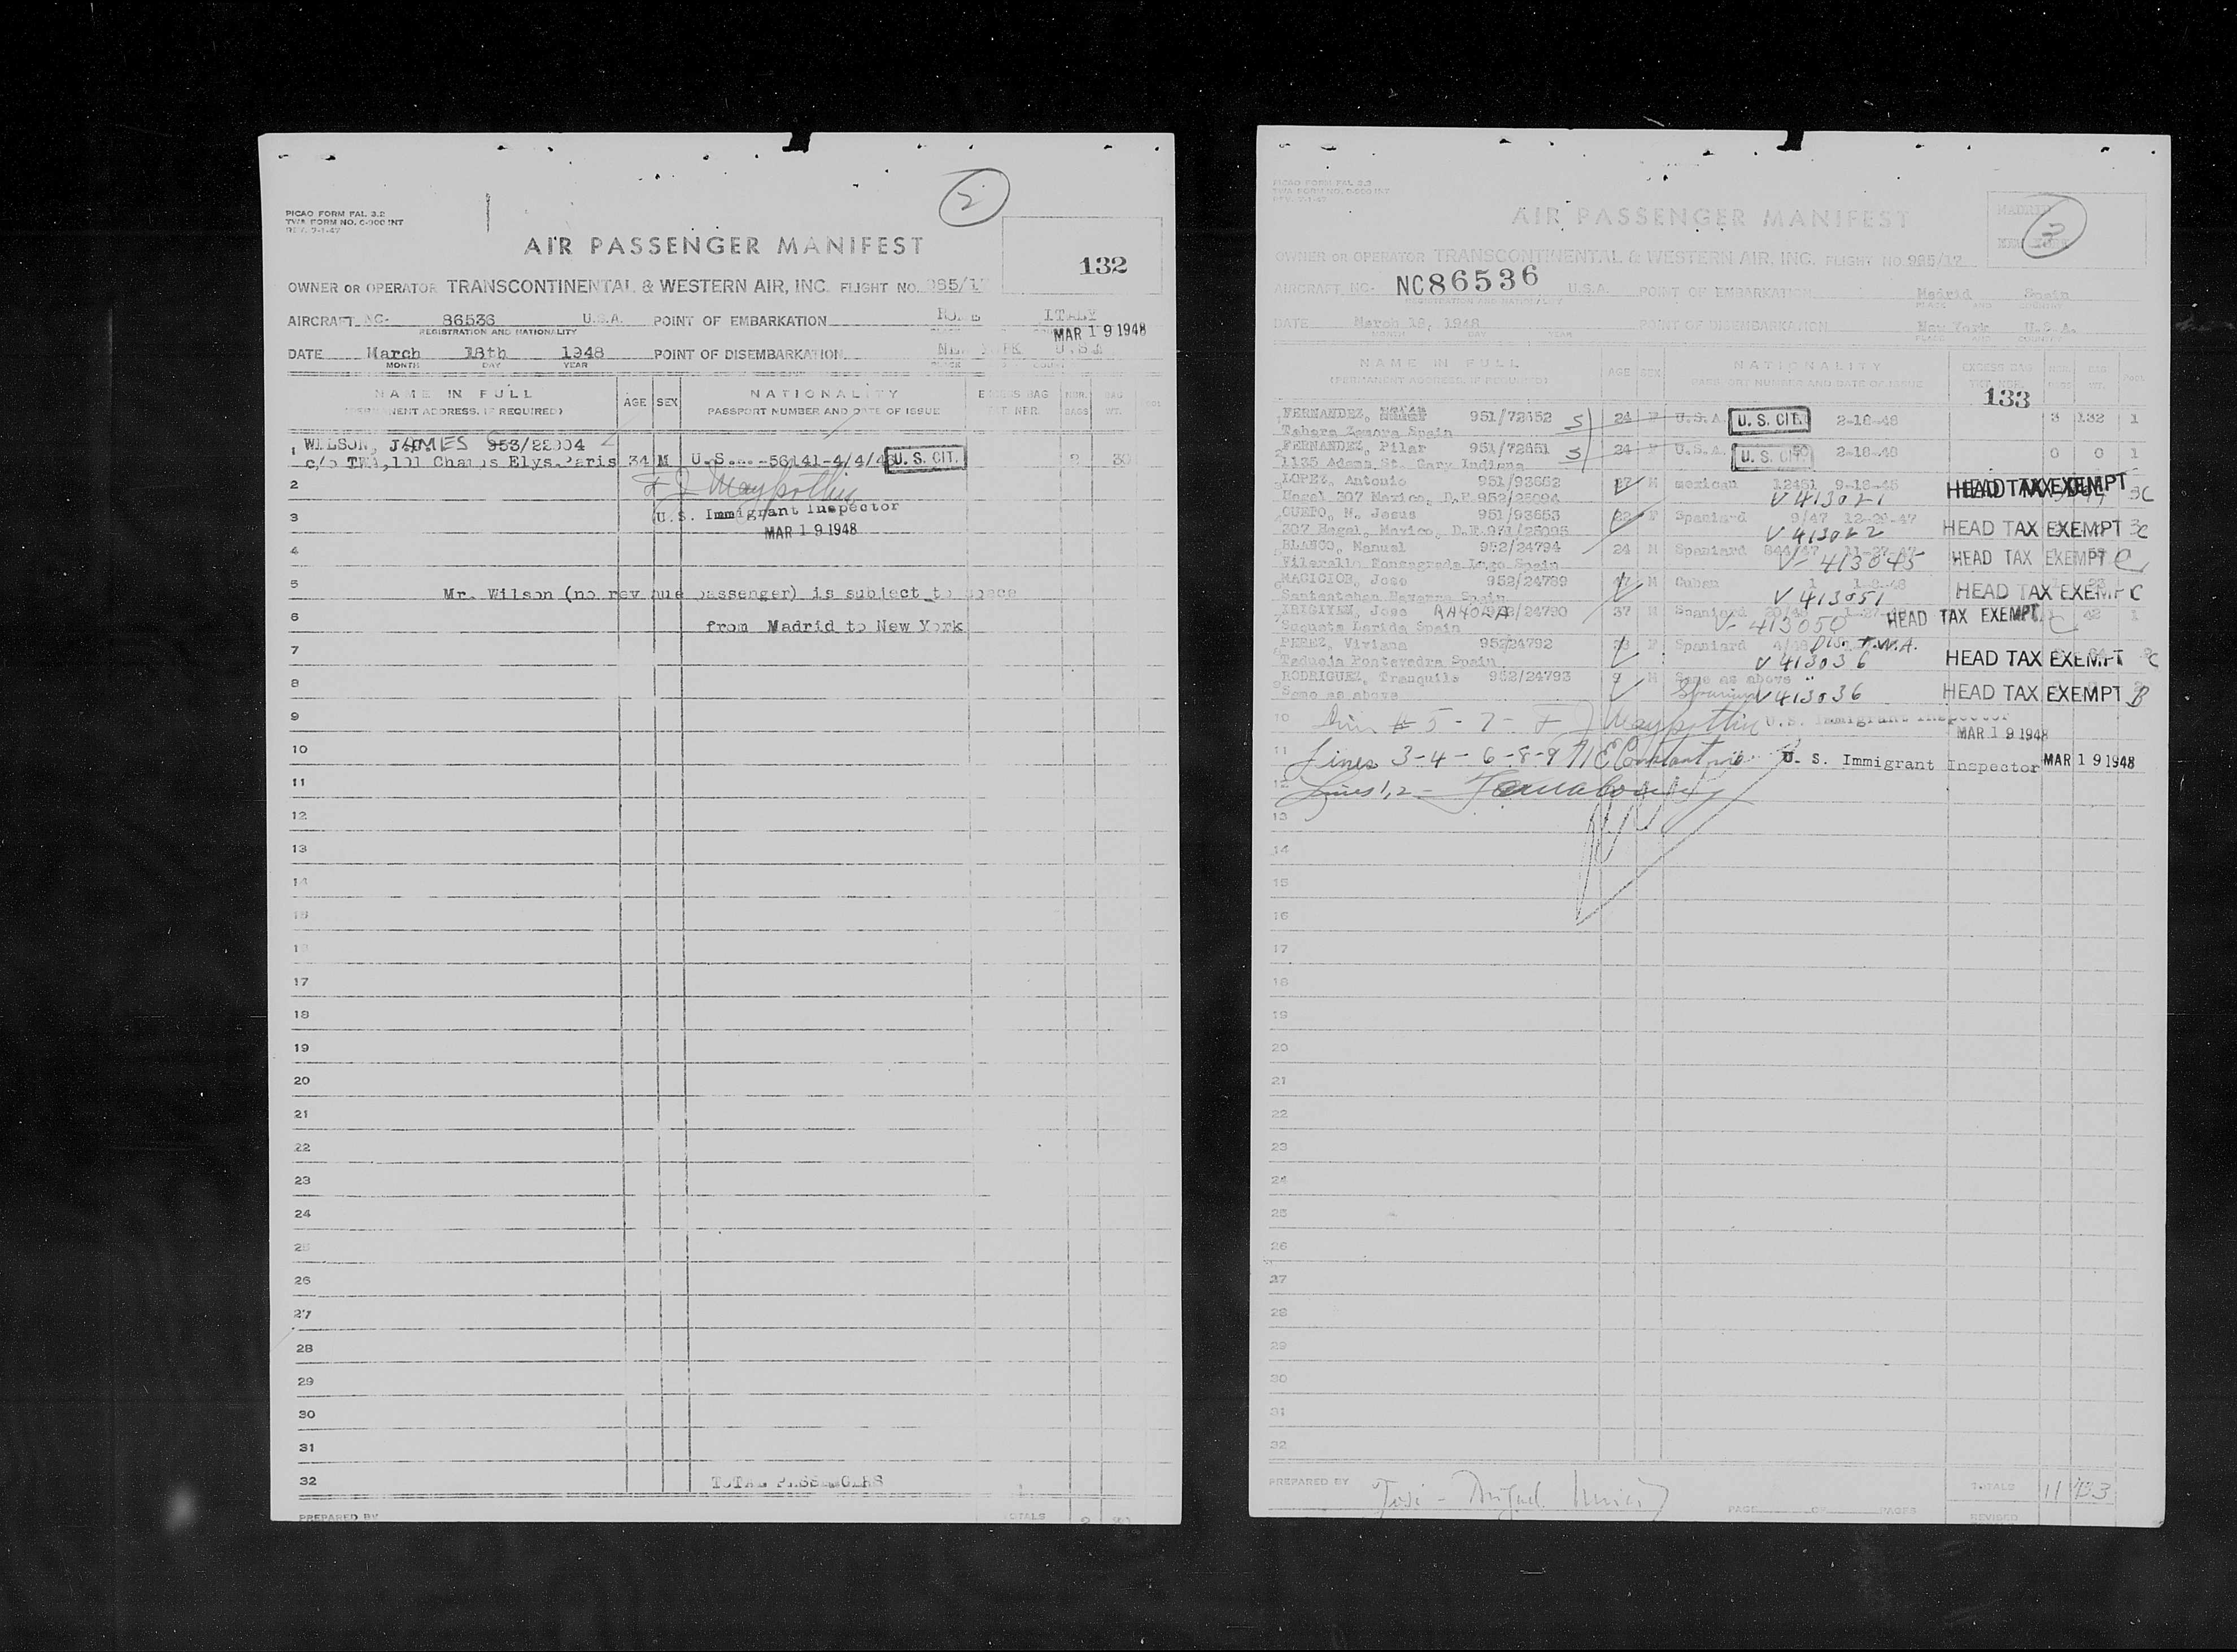 PICAO FORM PAL 3.2
TWA FORM NO. O-900 INT
REV. 7-1-47
2
AIR PASSENGER MANIFEST
132
OWNER OR OPERATOR TRANSCONTINENTAL & WESTERN AIR, INC. FLIGHT NO. 985/17
AIRCRAFT NC- 86536 U.S.A. POINT OF EMBARKATION ROME ITALY
REGISTRATION AND NATIONALITY
MAR 19 1948
DATE March 18th 1948 POINT OF DISEMBARKATION NEW YORK U.S.A
MONTH DAY YEAR PLACE COUNTRY
NAME IN FULL AGE SEX NATIONALITY EXCESS BAG NBR. BAG
(PERMANENT ADDRESS, IF REQUIRED) PASSPORT NUMBER AND DATE OF ISSUE TKT NBR. BAGS WT.
1 WILSON, JAMES 953/22004
c/o TWA, 101 Champs Elys.Paris 34 M U.S. -56141-4/4/46 U.S. CIT. 2 30
2
U.S. Immigrant Inspector
3
MAR 19 1948
4
5
Mr. Wilson (no revenue passenger) is subject to space
6
from Madrid to New York
7
8
9
10
11
12
13
14
15
16
17
18
19
20
21
22
23
24
25
26
27
28
29
30
31
32 TOTAL PASSENGERS 1
PREPARED BY TOTALS 2 30
PICAO FORM PAL 3.2
TWA FORM NO. O-900 INT
REV. 7-1-47
AIR PASSENGER MANIFEST
MADRID
NEW YORK
3
OWNER OR OPERATOR TRANSCONTINENTAL & WESTERN AIR, INC. FLIGHT NO. 985/17
AIRCRAFT NC- NC86536 U.S.A. POINT OF EMBARKATION Madrid Spain
REGISTRATION AND NATIONALITY PLACE AND COUNTRY
DATE March 18, 1948 POINT OF DISEMBARKATION New York U.S.A.
MONTH DAY YEAR PLACE AND COUNTRY
NAME IN FULL AGE SEX NATIONALITY EXCESS BAG NBR. BAG
(PERMANENT ADDRESS, IF REQUIRED) PASSPORT NUMBER AND DATE OF ISSUE TKT NBR. BAGS WT.
133
FERNANDEZ, 951/72652 S 24 F U.S.A. U.S. CIT. 2-18-48 3 132 1
Tabara Zamora Spain
FERNANDEZ, Pilar 951/72651 S 24 F U.S.A. U.S. CIT. 2-18-48 0 0 1
1135 Adams St. Gary Indiana
LOPEZ, Antonio 951/93662 37 M mexican 12451 9-18-45 HEAD TAX EXEMPT 3C
Hegel 307 Mexico, D.F. 952/25094 V413021
CUETO, M. Jesus 951/93653 F Spaniard 9/47 12-29-47 HEAD TAX EXEMPT 3C
307 Hegel, Mexico, D.F. 951/25095 V413022
BLANCO, Manuel 952/24794 24 M Spaniard 844/47 11-27-47 HEAD TAX EXEMPT C
Fonsagrada Lugo Spain V-413045
952/24789 47 M Cuban 1 HEAD TAX EXEMPT C
Santesteban Navarra Spain V413051
Jose RAMONA 952/24790 37 M Spaniard HEAD TAX EXEMPT 42 1
Lerida Spain V-413050
PEREZ, Viviana 952/24792 F Spaniard T.W.A. HEAD TAX EXEMPT C
Pontevedra Spain V413036
RODRIGUEZ, Tranquilo 952/24793 9 M Same as above HEAD TAX EXEMPT B
Same as above V413036
10 # 5-7- U.S. Immigrant Inspector
MAR 19 1948
11 Lines 3-4-6-8-9 U. S. Immigrant Inspector MAR 19 1948
12 Lines 1,2 -
13
14
15
16
17
18
19
20
21
22
23
24
25
26
27
28
29
30
31
32
PREPARED BY PAGE OF PAGES TOTALS 11
REVISED